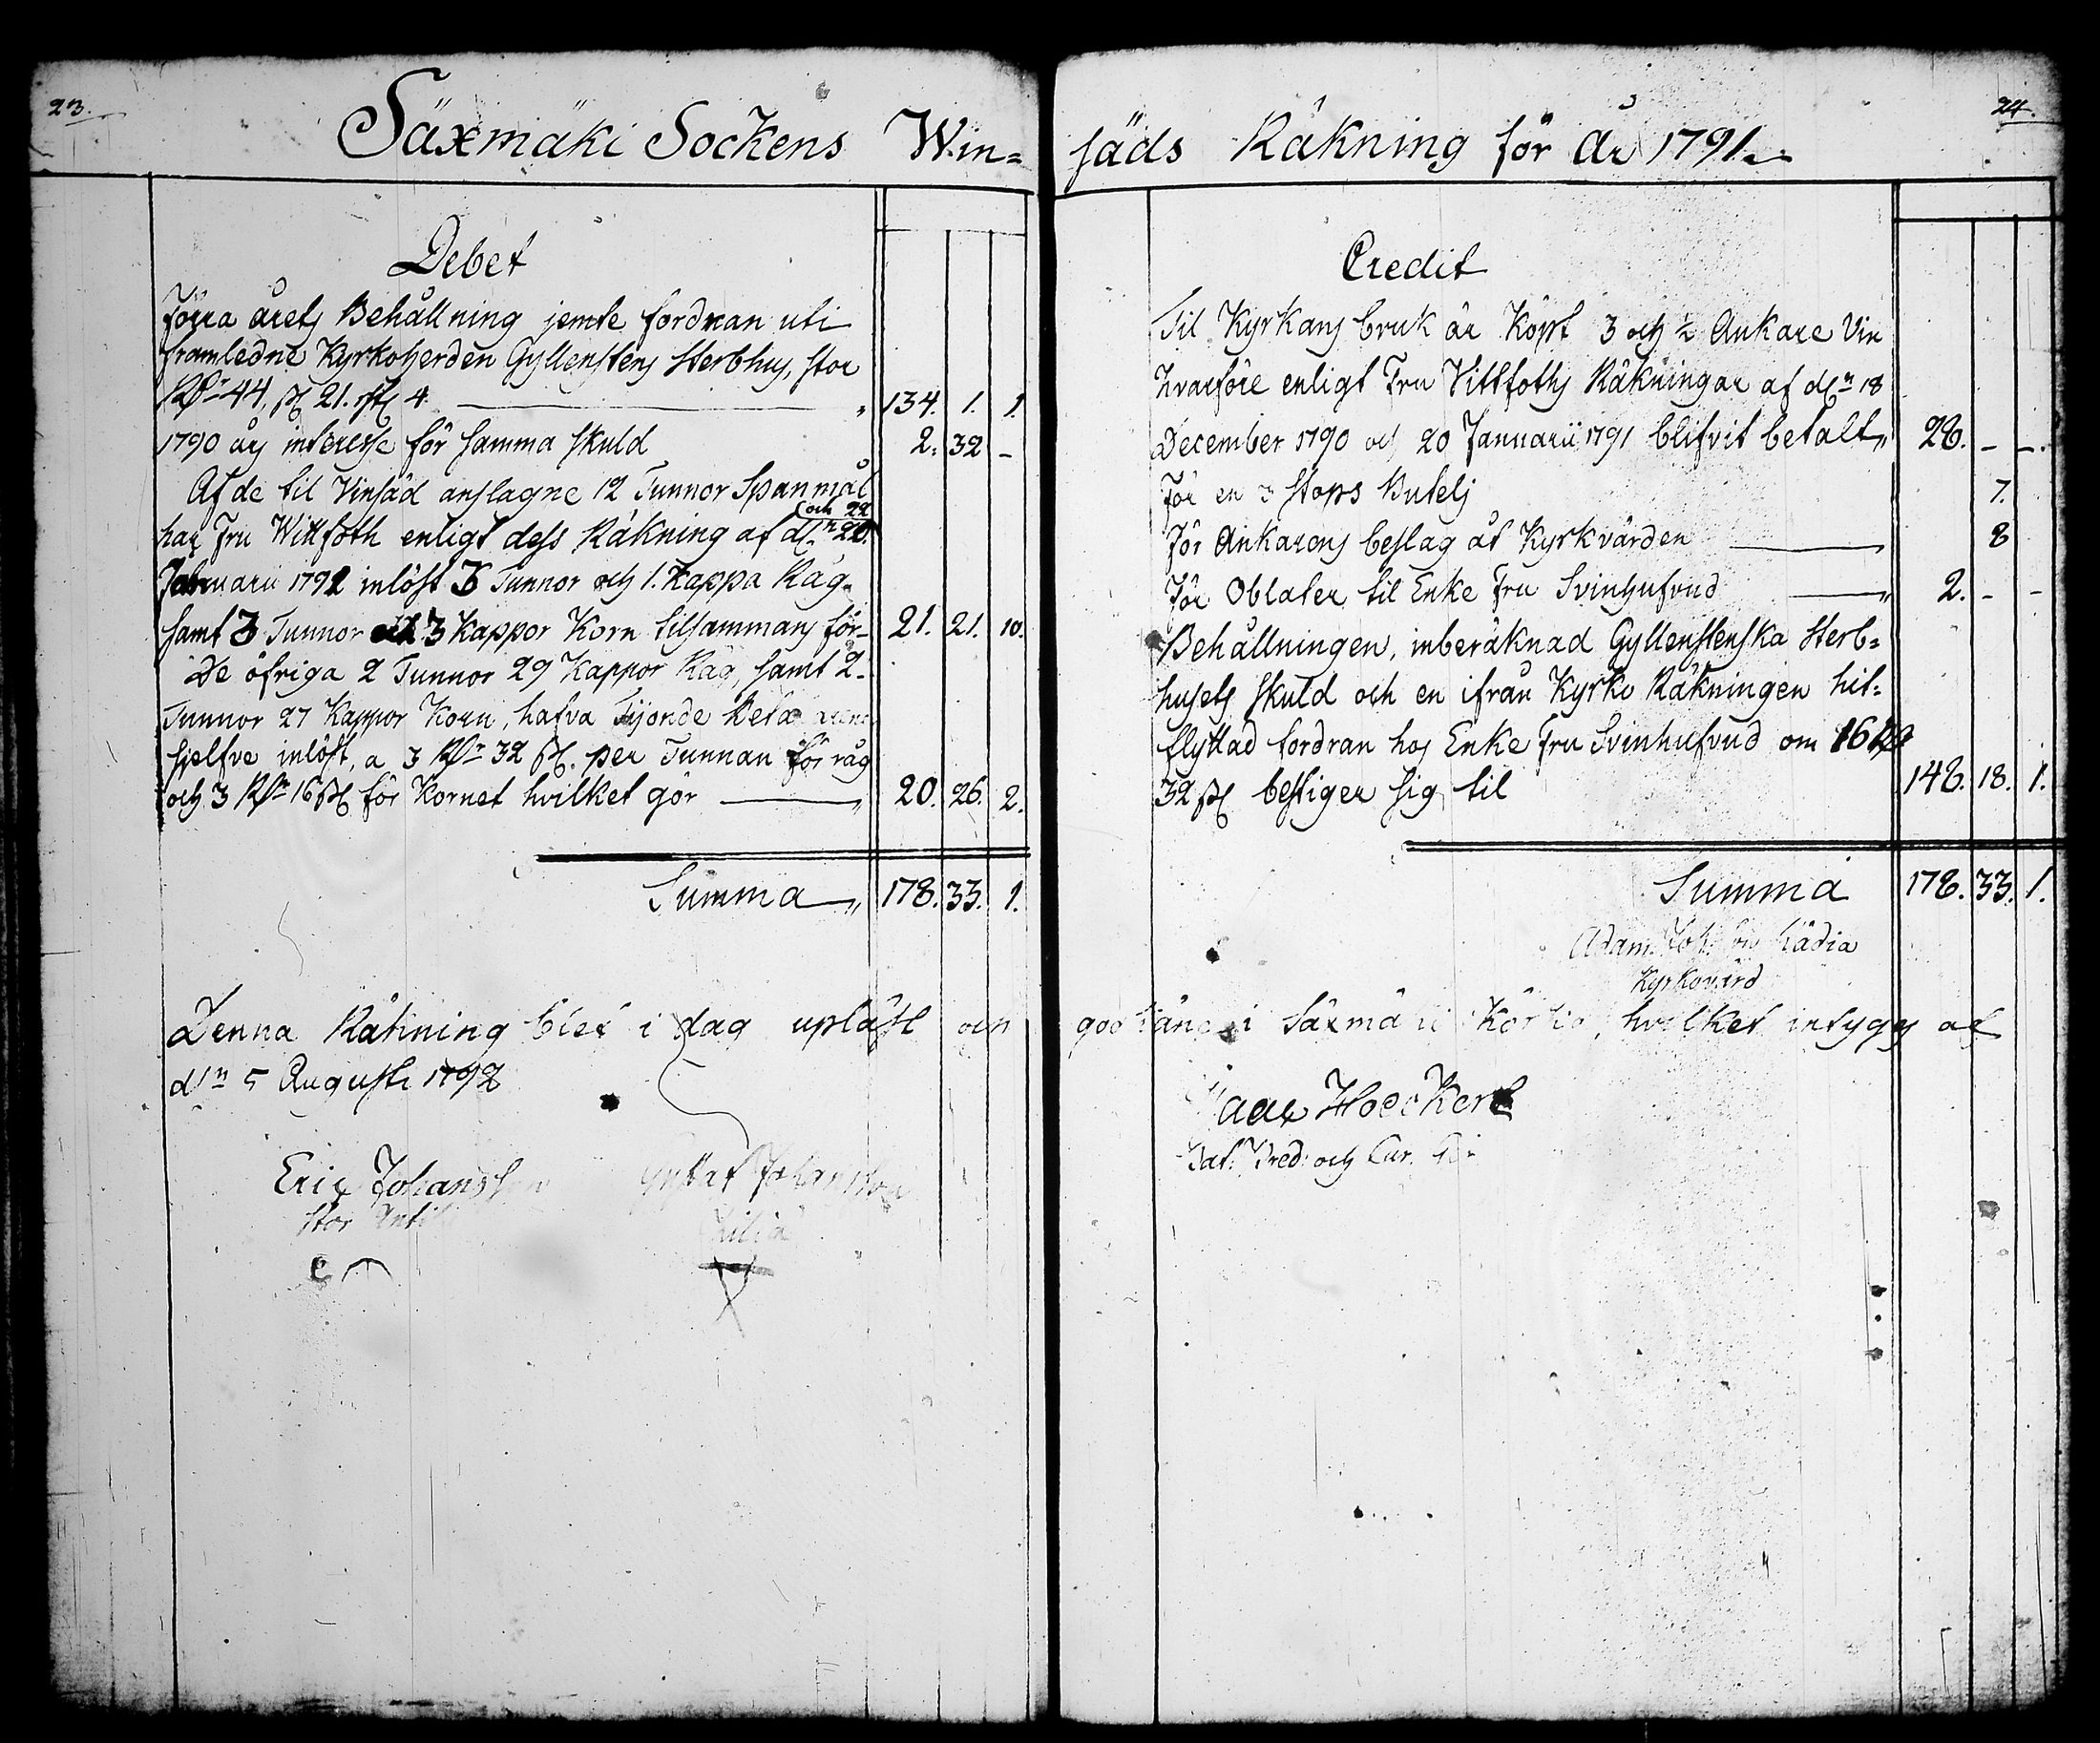 23.
Säxmäki Sockens Win=
Debet
Förra årets Behållning jemte fordran uti
framledne Kyrkoherden Gyllenstens Sterbhus, stor
Rdr 44, ß 21. rst 4. 134. 1. 1
1790 års interesse för samma skuld 2. 32 -
Af de til Vinsäd anslagne 12 Tunnor Spanmål
och 22
har Fru Wittfoth enligt dess Räkning af dn 20.
Februarii 1792 inlöst 3 Tunnor och 1. Kappa Råg=
samt 3 Tunnor 3 Kappor Korn tilsammans för- 21. 21. 10.
De öfriga 2 Tunnor 29 Kappor Råg, samt 2-
Tunnor 27 Kappor Korn, hafva Tijonde
sjelfve inlöst, a 3 Rdr 32 ß. per Tunnan för råg
och 3 Rdr 16 ß för Kornet hvilket gör 20. 26. 2.
Summa 178. 33. 1.
Denna Räkning blef i dag upläst och
dn 5 Augusti 1792
Eric Johansson
Stor
Gustaf Johansson
24.
säds Räkning för år 1791
Credit
Til Kyrkans bruk är Köpt 3 och ½ Ankare Vin
hvarföre enligt Fru Vittfoths Räkningar af dn 18
December 1790 och 20 Januarii 1791 blifvit betalt 28. - -.
För en 3 stops Butelj 7.
För Ankarens beslag åt Kyrkvärden 8
För Oblater til Enke Fru Svinhufvud 2. - -
Behållningen, inberäknad Gyllenstenska Sterb=
husets skuld och en ifrån Kyrko Räkningen hit=
flyttad fordran hos Enke Fru Svinhufvud om 16
32 ß bestiger sig til 148. 18. 1.
Summa 178. 33. 1.
Adam
Kyrkovärd
i Säxmäki hvilket intygas af
Hoeckert
Past: Pred: och Cur.